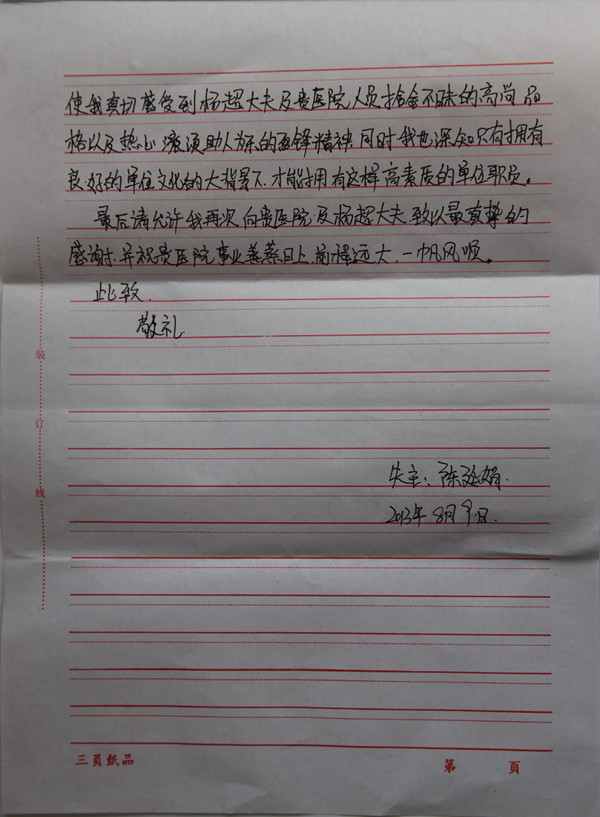 使我真切感受到杨超大夫及贵医院人员拾金不昧的高尚品
格以及热心滚烫助人为乐的雷锋精神,同时我也深知只有拥有
良好的单位文化的大背景下,才能拥有这样高素质的单位职员。
最后请允许我再次向贵医院及杨超大夫,致以最真挚的
感谢,并祝贵医院事业蒸蒸日上,前程远大,一帆风顺。
此致.
敬礼
装
订
线
失主:陈延娟.
2013年8月9日.
三員紙品
第 頁